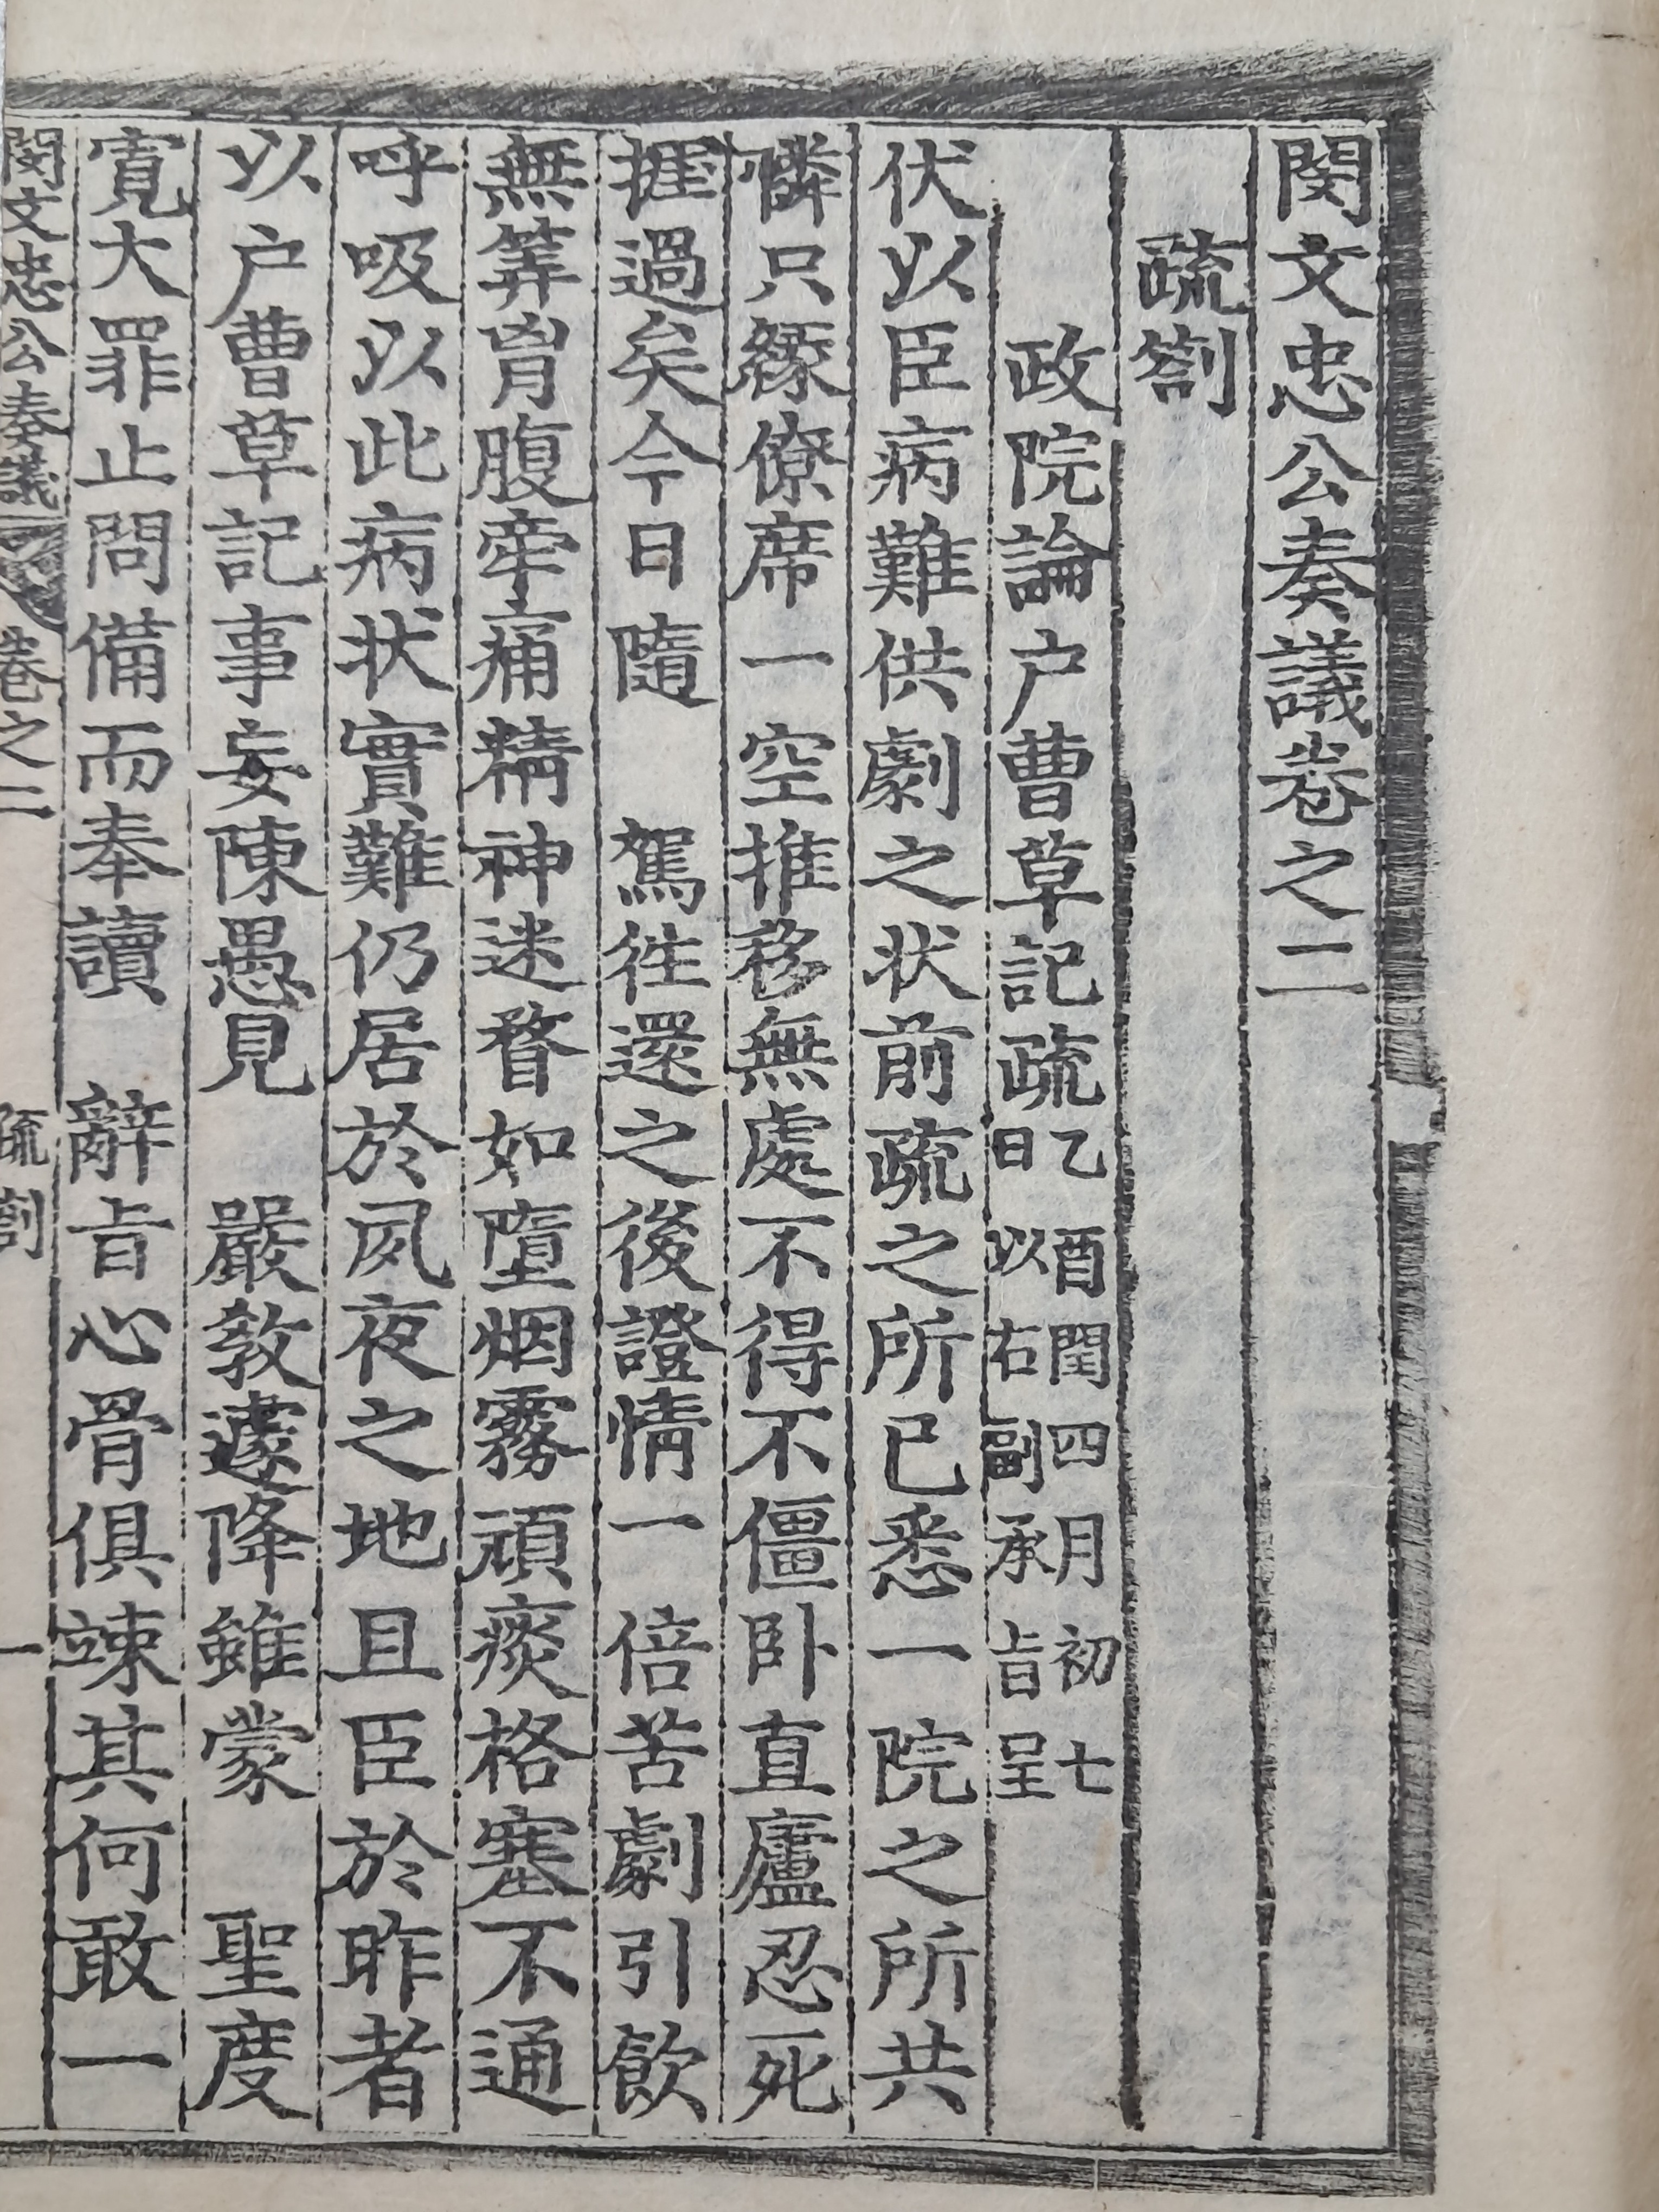 閔文忠公奏議卷之二
疏劄
政院論户曹草記疏乙酉閏四月初七日以右副承旨呈
伏以臣病難供劇之状前疏之所已悉一院之所共
憐只緣僚席一空推移無處不得不僵卧直廬忍死
捱過矣今日隨 駕徃還之後證情一倍苦劇引飮
無筭胷腹牽痛精神迷瞀如墮烟霧頑痰格塞不通
呼吸以此病状實難仍居於夙夜之地且臣於昨者
以户曹草記事妄陳愚見 嚴敎遽降雖蒙 聖度
寬大罪止問備而奉讀 辭旨心骨俱竦其何敢一
閔文忠公奏議 卷之二 疏劄 一